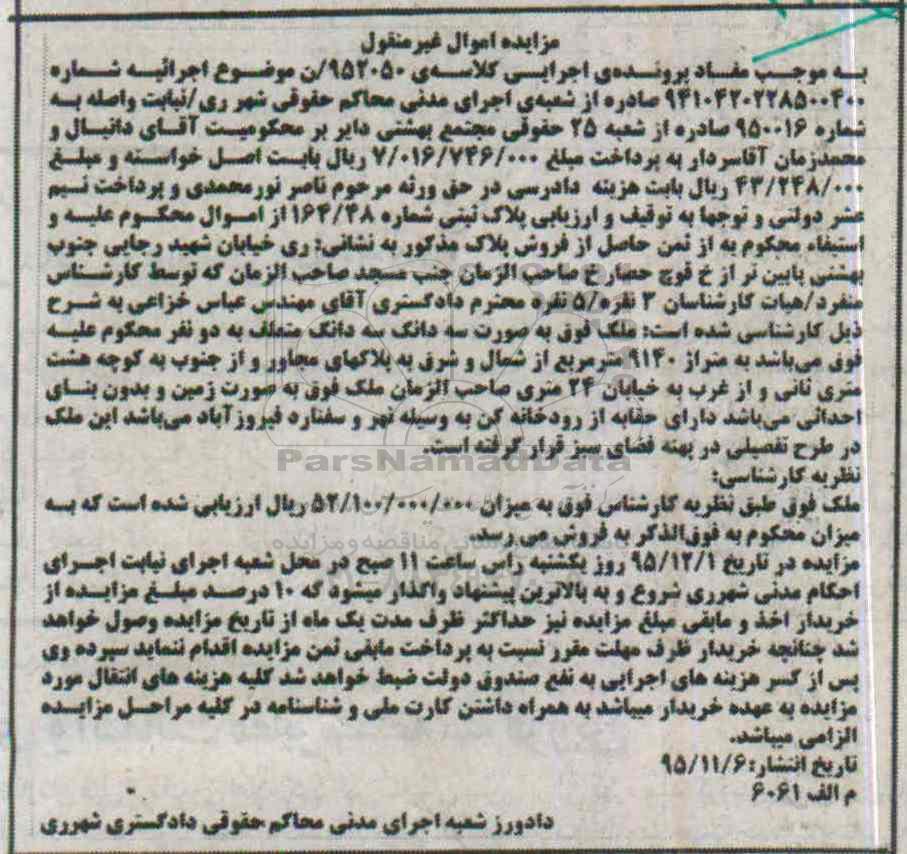 مزایده اموال غیرمنقول
به موجب مفاد پرونده‌ی اجرایی کلاسه‌ی ۹۵۲۰۵۰/ن موضوع اجرائیه شماره
۹۴۱۰۴۲۰۲۲۸۵۰۰۴۰۰ صادره از شعبه‌ی اجرای مدنی محاکم حقوقی شهر ری/نیابت واصله به
شماره ۹۵۰۰۱۶ صادره از شعبه ۲۵ حقوقی مجتمع بهشتی دایر بر محکومیت آقای دانیال و
محمدزمان آقاسردار به پرداخت مبلغ ۷/۰۱۶/۷۴۶/۰۰۰ ریال بابت اصل خواسته و مبلغ
۴۳/۲۴۸/۰۰۰ ریال بابت هزینه دادرسی در حق ورثه مرحوم ناصر نورمحمدی و پرداخت نیم
عشر دولتی و توجها به توقیف و ارزیابی پلاک ثبتی شماره ۱۶۴/۴۸ از اموال محکوم علیه و
استیفاء محکوم به از ثمن حاصل از فروش پلاک مذکور به نشانی: ری خیابان شهید رجایی جنوب
بهشتی پایین تر از خ قوچ حصار خ صاحب الزمان جنب مسجد صاحب الزمان که توسط کارشناس
منفرد/هیات کارشناسان ۳ نفره/۵ نفره محترم دادگستری آقای مهندس عباس خزاعی به شرح
ذیل کارشناسی شده است: ملک فوق به صورت سه دانگ سه دانگ متعلف به دو نفر محکوم علیه
فوق می‌باشد به متراژ ۹۱۴۰ مترمربع از شمال و شرق به پلاکهای مجاور و از جنوب به کوچه هشت
متری ثانی و از غرب به خیابان ۲۴ متری صاحب الزمان ملک فوق به صورت زمین و بدون بنای
احداثی می‌باشد دارای حقابه از رودخانه کن به وسیله نهر و سفنارد فیروزآباد می‌باشد این ملک
در طرح تفصیلی در پهنه فضای سبز قرار گرفته است.
ParsNamadData
نظریه کارشناسی:
ملک فوق طبق نظریه کارشناس فوق به میزان ۵۲/۱۰۰/۰۰۰/۰۰۰ ریال ارزیابی شده است که به
میزان محکوم به فوق‌الذکر به فروش می رسد.
مزایده در تاریخ ۹۵/۱۲/۱ روز یکشنبه راس ساعت ۱۱ صبح در محل شعبه اجرای نیابت اجرای
احکام مدنی شهرری شروع و به بالاترین پیشنهاد واگذار میشود که ۱۰ درصد مبلغ مزایده از
خریدار اخذ و مابقی مبلغ مزایده نیز حداکثر ظرف مدت یک ماه از تاریخ مزایده وصول خواهد
شد چنانچه خریدار ظرف مهلت مقرر نسبت به پرداخت مابقی ثمن مزایده اقدام ننماید سپرده وی
پس از کسر هزینه های اجرایی به نفع صندوق دولت ضبط خواهد شد کلیه هزینه های انتقال مورد
مزایده به عهده خریدار میباشد به همراه داشتن کارت ملی و شناسنامه در کلیه مراحل مزایده
الزامی میباشد.
تاریخ انتشار: ۹۵/۱۱/۶
م الف ۶۰۶۱
دادورز شعبه اجرای مدنی محاکم حقوقی دادگستری شهرری